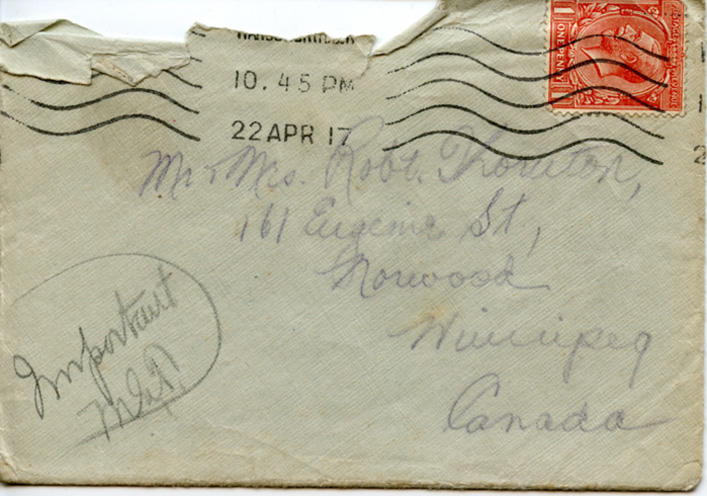 10.45 PM
22 APR 17
ONE PENNY
1
1
Mr & Mrs. Robt. Thornton,
161 Eugenie St,
Norwood
Winnipeg
Canada
Important